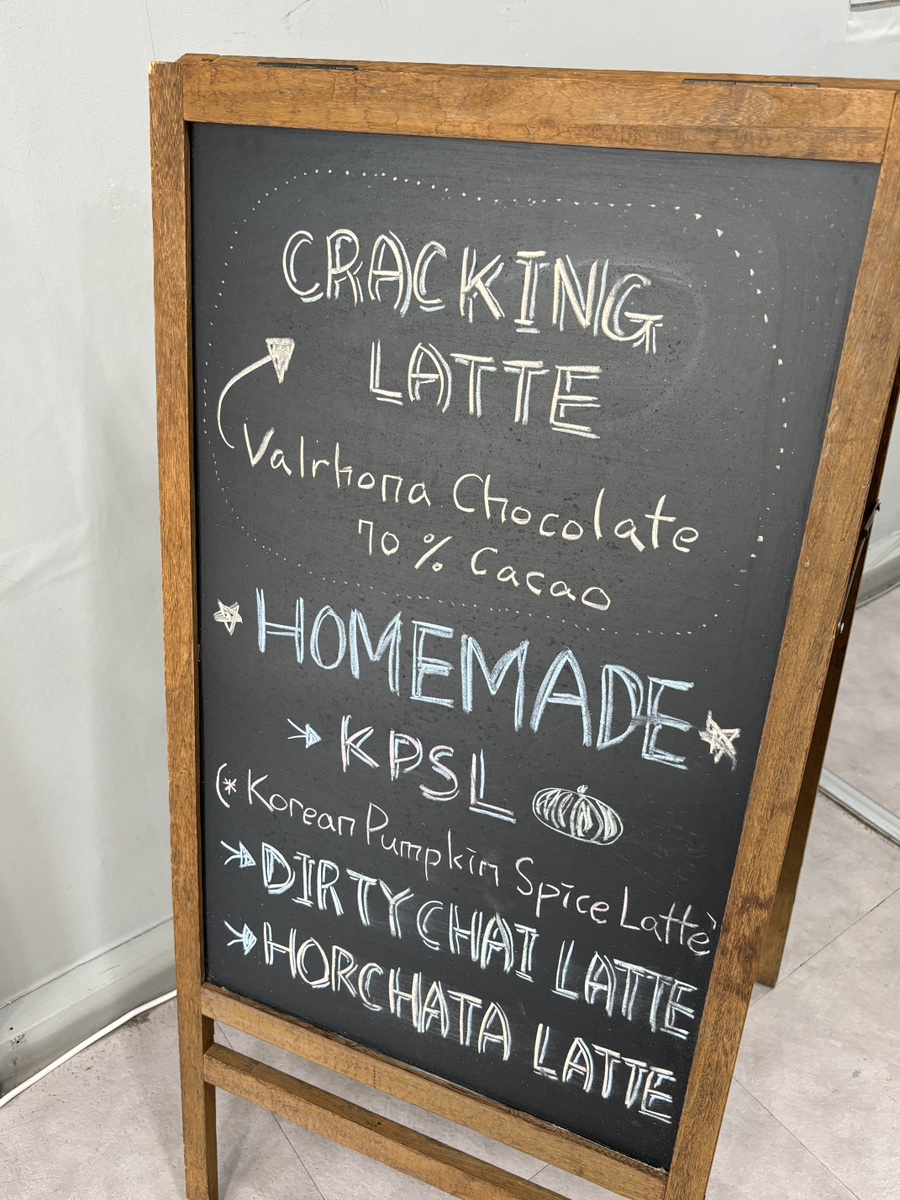 CRACKING
LATTE
Valrhona Chocolate
70% Cacao
HOMEMADE
KPSL
(* Korean Pumpkin Spice Latte)
DIRTY CHAI LATTE
HORCHATA LATTE